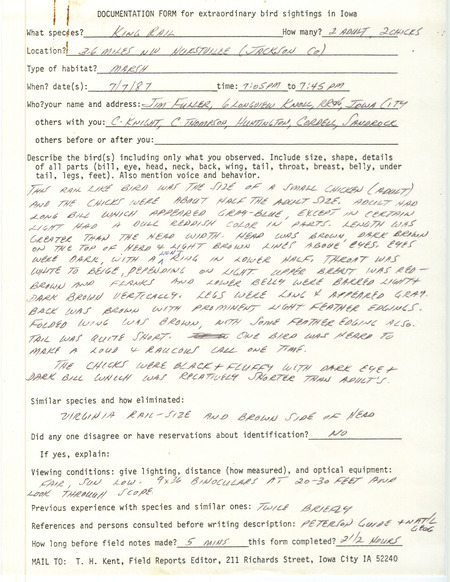 DOCUMENTATION FORM for extraordinary bird sightings in Iowa
What species? KING RAIL How many? 2 ADULT, 2 CHICKS
Location? 2.6 MILES NW HURSTVILLE (JACKSON CO)
Type of habitat? MARSH
When? date(s): 7/7/87 time: 7:05 PM to 7:45 PM
Who?your name and address: JIM FULLER, 6 LONGVIEW KNOLL, RR#6, IOWA CITY
others with you: C. KNIGHT, C THOMPSON, HUNTINGTON, CORDELL, SANDROCK
others before or after you:
Describe the bird(s) including only what you observed. Include size, shape, details
of all parts (bill, eye, head, neck, back, wing, tail, throat, breast, belly, under
tail, legs, feet). Also mention voice and behavior.
THIS RAIL LIKE BIRD WAS THE SIZE OF A SMALL CHICKEN (ADULT)
AND THE CHICKS WERE ABOUT HALF THE ADULT SIZE. ADULT HAD
LONG BILL WHICH APPEARED GRAY-BLUE, EXCEPT IN CERTAIN
LIGHT HAD A DULL REDDISH COLOR IN PARTS. LENGTH WAS
GREATER THAN THE HEAD WIDTH. HEAD WAS BROWN, DARK BROWN
ON THE TOP OF HEAD & LIGHT BROWN LINES ABOVE EYES. EYES
WERE DARK, WITH A LIGHT RING IN LOWER HALF. THROAT WAS
WHITE TO BEIGE, DEPENDING ON LIGHT. UPPER BREAST WAS RED-
BROWN AND FLANKS AND LOWER BELLY WERE BARRED LIGHT &
DARK BROWN VERTICALLY. LEGS WERE LONG & APPEARED GRAY.
BACK WAS BROWN WITH PROMINENT LIGHT FEATHER EDGINGS.
FOLDED WING WAS BROWN, WITH SOME FEATHER EDGING ALSO.
TAIL WAS QUITE SHORT. ONE BIRD WAS HEARD TO
MAKE A LOUD & RAUCOUS CALL ONE TIME.
THE CHICKS WERE BLACK & FLUFFY WITH DARK EYE &
DARK BILL WHICH WAS RELATIVELY SHORTER THAN ADULT'S.
Similar species and how eliminated:
VIRGINIA RAIL - SIZE AND BROWN SIDE OF HEAD
Did any one disagree or have reservations about identification? NO
If yes, explain:
Viewing conditions: give lighting, distance (how measured), and optical equipment:
FAIR, SUN LOW. 9x36 BINOCULARS AT 20-30 FEET AND
LOOK THROUGH SCOPE
Previous experience with species and similar ones: TWICE BRIEFLY
References and persons consulted before writing description: PETERSON GUIDE & NAT'L GEOG
How long before field notes made? 5 MINS this form completed? 2 1/2 HOURS
MAIL TO: T. H. Kent, Field Reports Editor, 211 Richards Street, Iowa City IA 52240